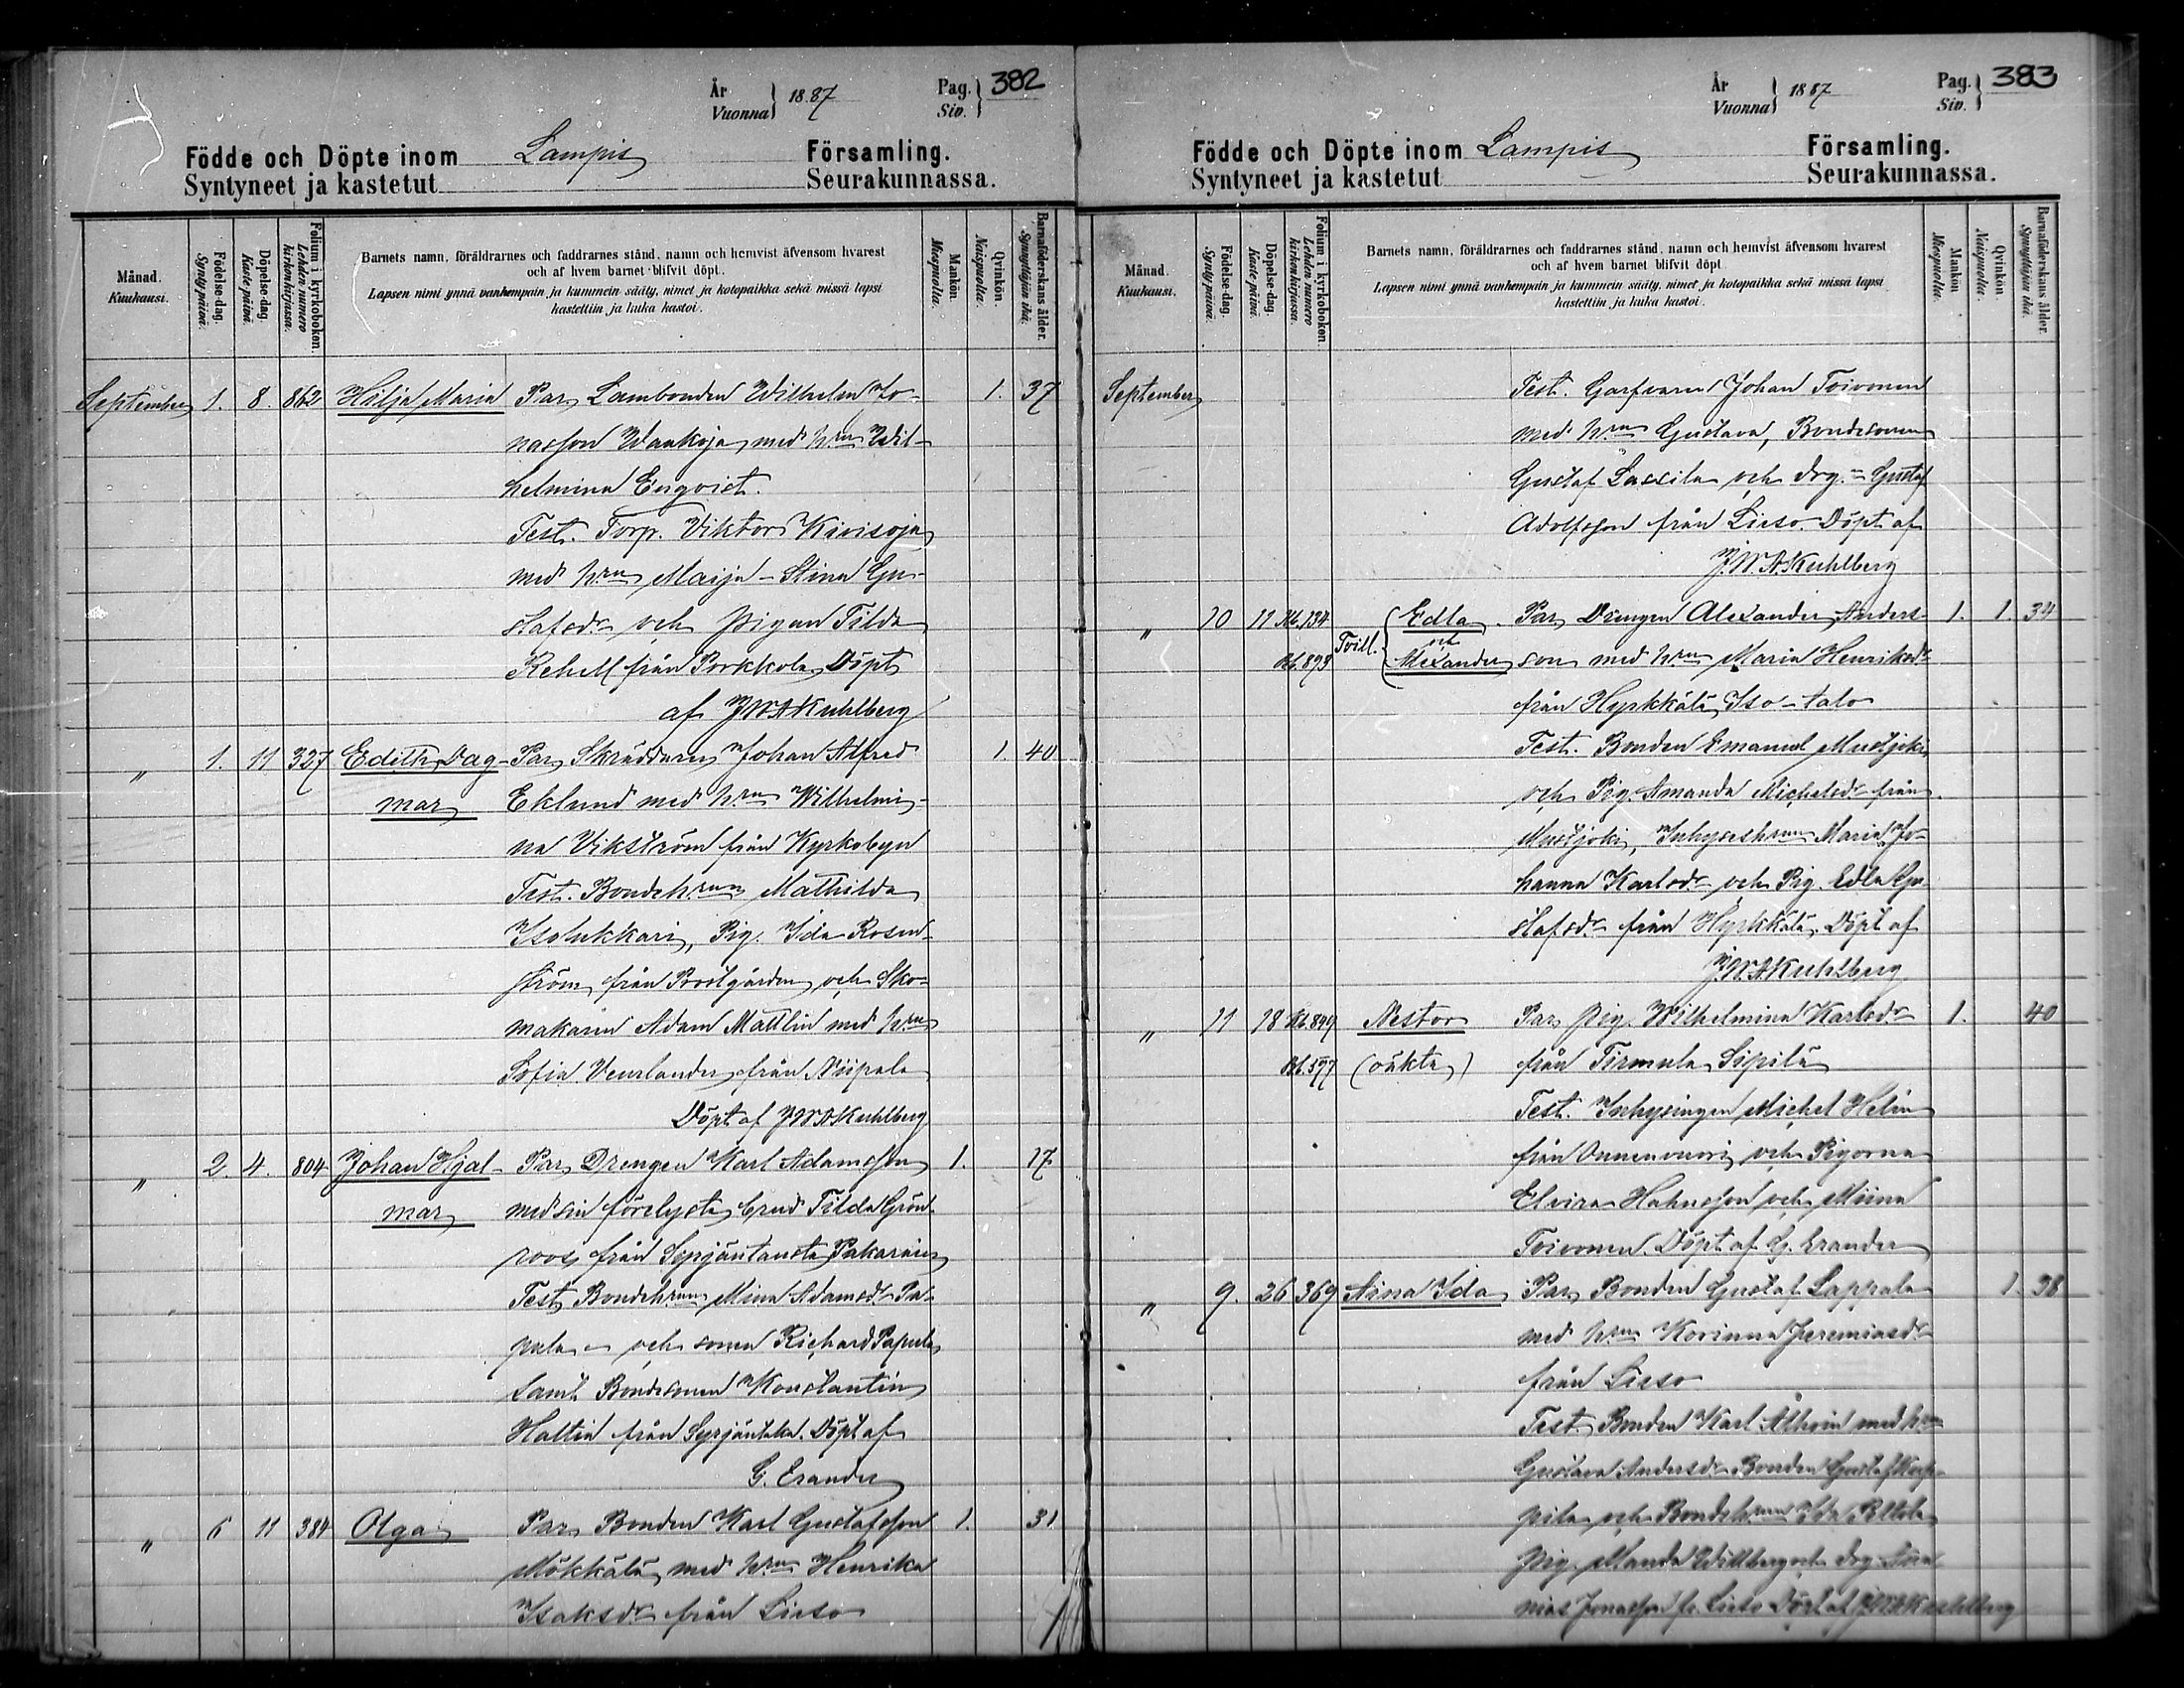 År
Vuonna } 1887
Pag.
Siv. } 382
Födde och Döpte inom Lampis Församling.
Syntyneet ja kastetut Seurakunnassa.
Månad.
Kuukausi.
Födelse-dag.
Syntypäivä.
Döpelse-dag.
Kastepäivä.
Folium i kyrkoboken.
Lehden numero
kirkonkirjassa.
Barnets namn, föräldrarnes och faddrarnes stånd, namn och hemvist äfvensom hvarest
och af hvem barnet blifvit döpt.
Lapsen nimi ynnä vanhempain ja kummein sääty, nimet ja kotopaikka sekä missä lapsi
kastettiin ja kuka kastoi.
Mankön.
Miespuolta.
Qvinkön.
Naispuolta.
Barnaföderskans ålder.
Synnyttäjän ikä.
September 1. 8. 862 Hilja Maria Par. Lambonden Wilhelm Jo- 1. 37
nasson Wankoja med h:run Wil-
helmina Enqvist.
Test. Torp. Viktor Kivisoja
med h:run Maija-Stina Gu-
stafsdr och pigan Tilda
Rehell från Porkkola Döpt
af J.W.A. Kuhlberg
" 1. 11 327 Edith Dag- Par. Skräddaren Johan Alfred 1. 40
mar Eklund med h:run Wilhelmi-
na Vikström från Kyrkobyn
Test. Bondeh:run Mathilda
Isolukkari, Pig. Ida Rosen-
ström från Prostgården och Sko-
makaren Adam Mattlin med h:run
Sofia Venelander från Niipala
Döpt af J.W.A. Kuhlberg
" 2. 4. 804 Johan Hjal- Par. Drengen Karl Adamsson 1. 17
mar med sin förelysta brud Tilda Grön-
roos från Syrjäntausta Pakarinen
Test. Bondeh:run Mina Adamsdr Pa-
pula och sonen Richard Papula
samt Bondesonen Konstantin
Hattia från Syrjäntaka. Döpt af
G. Erander
" 6 11 384 Olga Par. Bonden Karl Gustafsson 1. 31
Mökkälä med h:run Henrika
Isaksdr från Lieso
År
Vuonna } 1887
Pag.
Siv. } 383
Födde och Döpte inom Lampis Församling.
Syntyneet ja kastetut Seurakunnassa.
Månad.
Kuukausi.
Födelse-dag.
Syntypäivä.
Döpelse-dag.
Kastepäivä.
Folium i kyrkoboken.
Lehden numero
kirkonkirjassa.
Barnets namn, föräldrarnes och faddrarnes stånd, namn och hemvist äfvensom hvarest
och af hvem barnet blifvit döpt.
Lapsen nimi ynnä vanhempain ja kummein sääty, nimet ja kotopaikka sekä missä lapsi
kastettiin ja kuka kastoi.
Mankön
Miespuolta.
Qvinkön.
Naispuolta.
Barnaföderskans ålder.
Synnyttäjän ikä.
September Test. Garfvaren Johan Toivonen
med h:run Gustava, Bondesonen
Gustaf Lassila och drg. Gustaf
Adolfsson från Lieso. Döpt af
J.W.A. Kuhlberg
" 10 11 134 Edla Par. Drengen Alexander Anders- 1. 1. 34
893 Tvill. och Alexander son med h:run Maria Henriksdr
från Hyrkkälä Iso-talo
Test. Bonden Emanuel Mustjoki
och Pig. Amanda Michelsdr från
Mustjoki, Inhysesh:run Maria Jo-
hanna Karlsdr och Pig. Edla Gu-
stafsdr från Hyrkkälä. Döpt af
J.W.A. Kuhlberg
" 11 18 849 Nestor Par. Pig. Wilhelmina Karlsdr 1. 40
577 (oäkta) från Tirmula Sipilä
Test. Inhysingen Michel Helin
från Onnenvuori och Pigorna
Elvira Hahnsson och Miina
Toivonen. Döpt af G. Erander
" 9. 26 369 Aina Ida Par. Bonden Gustaf Lappala 1. 38
med h:run Korinna Jeremiasdr
från Lieso
Test. Bonden Karl med h:run
Gustava Andersdr Bonden Gustaf
pila och Bondeh:run Ida
Pig. Manda Willberg och drg.
nias Jonasson fr. Lieso Döpt af J.W.A. Kuhlberg